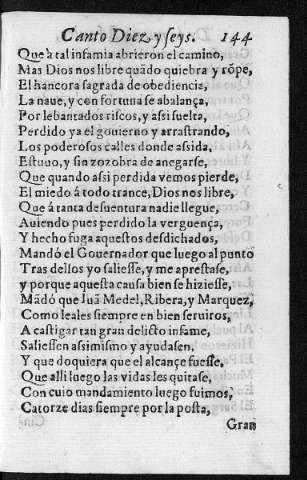 Canto Diez y seys. 144
Que à tal infamia abrieron el camino,
Mas Dios nos libre quãdo quiebra y rõpe,
El hancora sagrada de obediencia,
La naue, y con fortuna se abalança,
Por lebantados riscos, y assi suelta,
Perdido ya el gouierno y arrastrando,
Los poderosos calles donde assida,
Estuuo, y sin zozobra de anegarse,
Que quando assi perdida vemos pierde,
El miedo à todo trance, Dios nos libre,
Que à tanta desuentura nadie llegue,
Auiendo pues perdido la verguença,
Y hecho fuga aquestos desdichados,
Mandó el Gouernador que luego al punto
Tras dellos yo saliesse, y me aprestase,
y porque aquesta causa bien se hiziesse,
Mãdó que Juã Medel, Ribera, y Marquez,
Como leales siempre en bien seruiros,
A castigar tan gran delicto infame,
Saliessen assimismo y ayudasen,
Y que doquiera que el alcançe fuesse,
Que alli luego las vidas les quitase,
Con cuio mandamiento luego fuimos,
Catorze dias siempre por la posta,
Gran